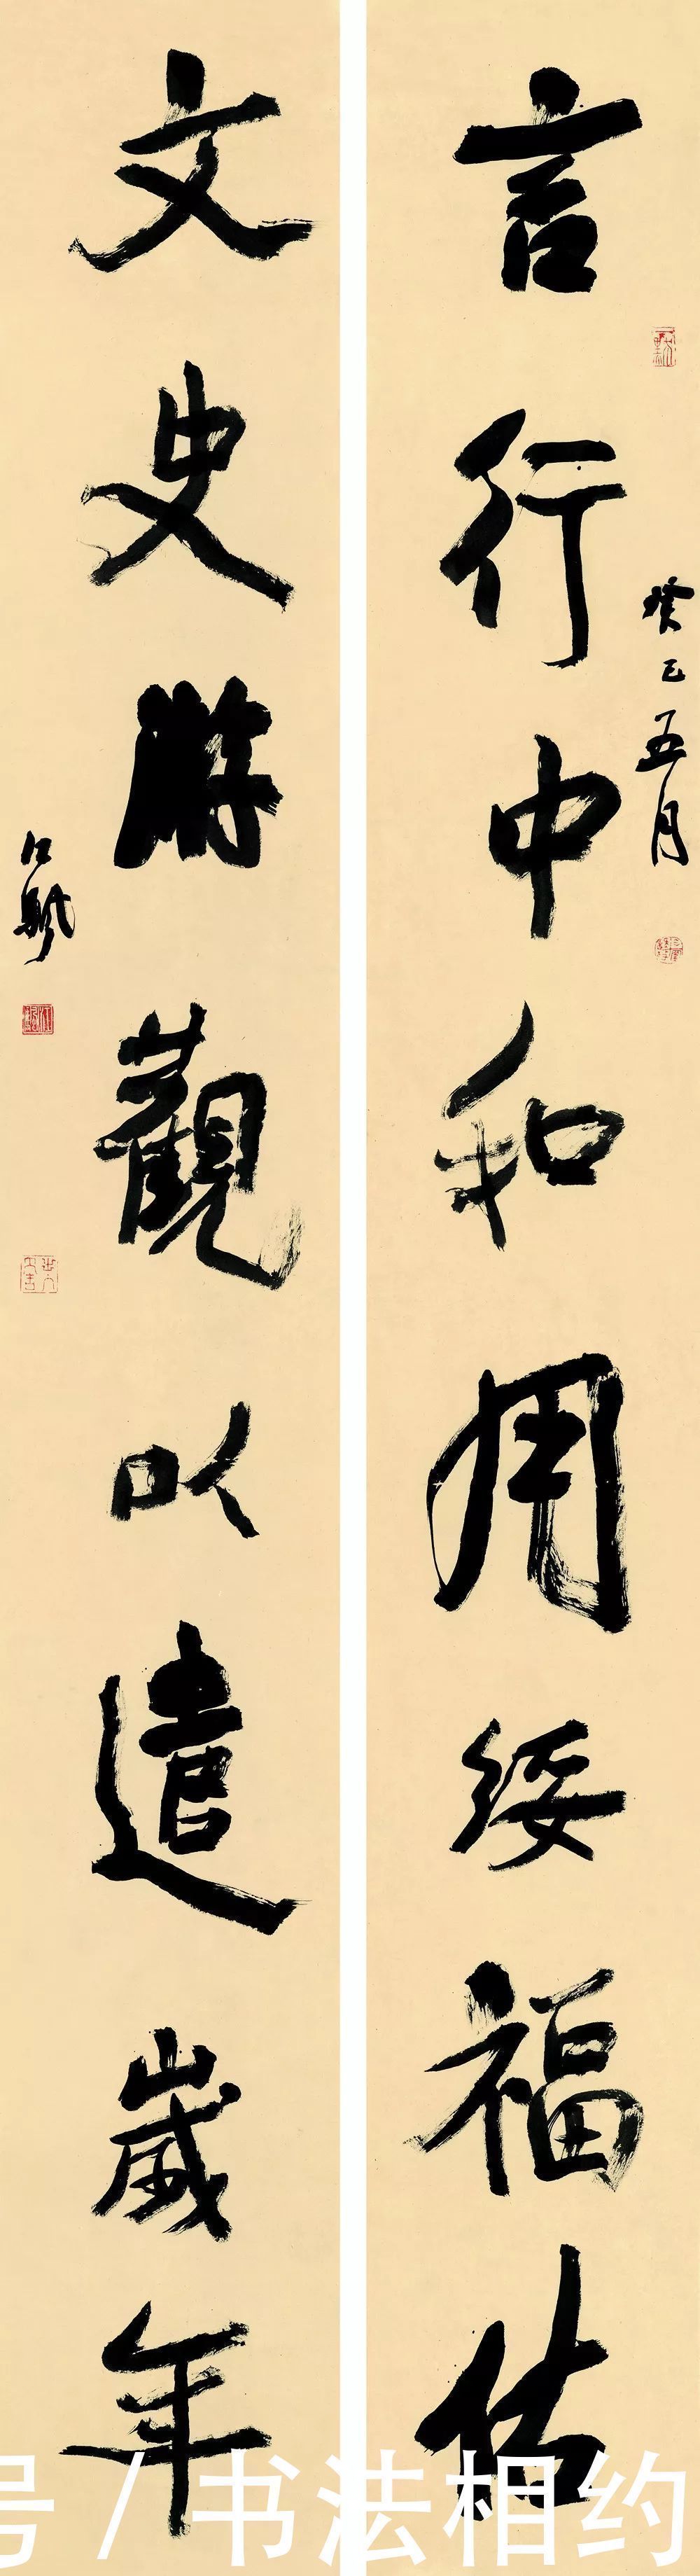 言行中和用綏福佑
癸巳五月
文史游觀以遣歲年
江飄
号/书法相约